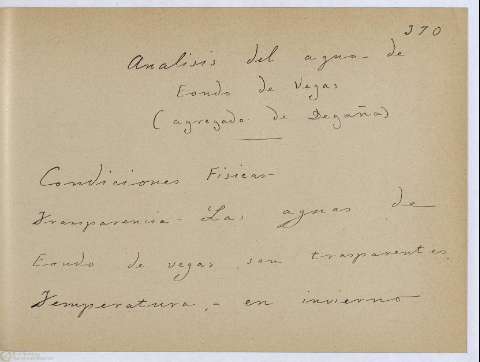 370
Analisis del agua de
Fondo de Vegas
(agregado de Degaña)
Condiciones Fisicas-
Transparencia - Las aguas de
Fondo de vegas son trasparentes
Temperatura, - en invierno